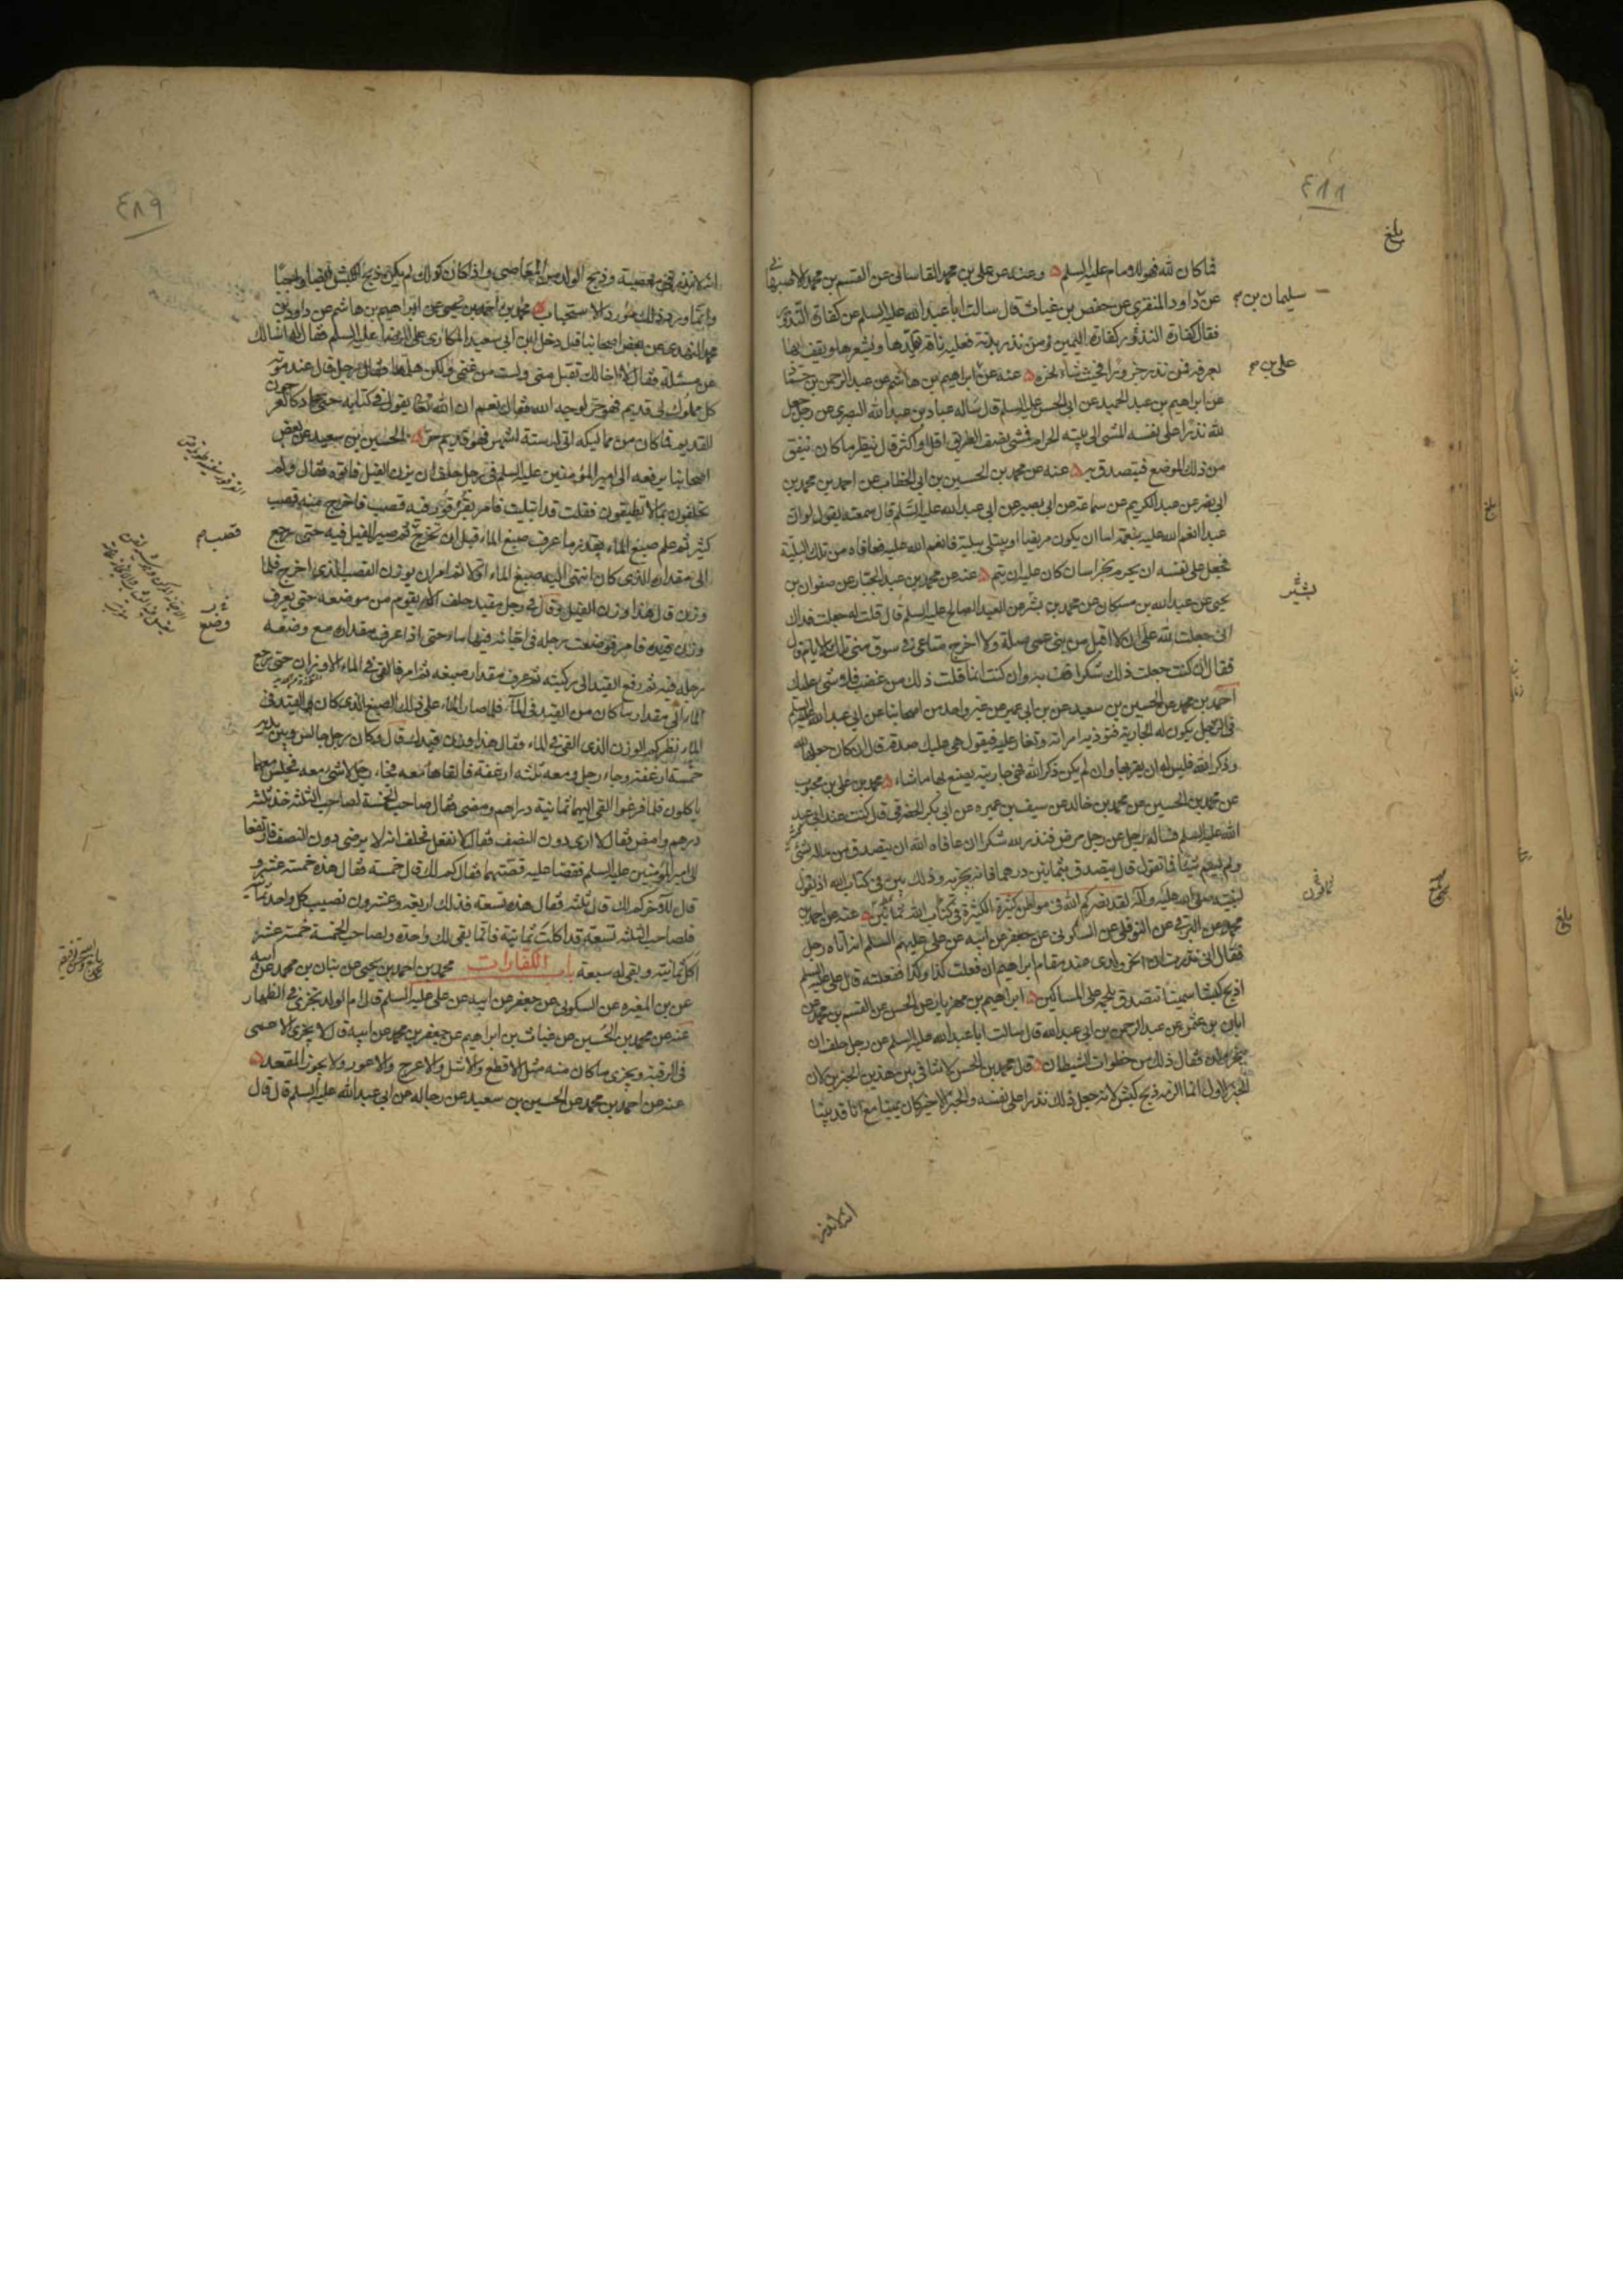 ٤٨٨
بلغ
فما كان لله فهو للامام عليه السلم وعنه عن علي بن محمد القاساني عن القسم بن محمد الاصبهاني
سليمان بن
عن داود المنقري عن حفص بن غياث قال سالت ابا عبد الله عليه السلم عن كفارة النذور
فقال كفارة النذور كفارة اليمين ومن نذر بدنة فعليه ناقة يقلدها ويشعرها ويقف بها
علي بن
بعرفة ومن نذر جزورا فحيث شاء نحره عنه عن ابراهيم بن هاشم عن عبد الرحمن بن حماد
عن ابراهيم بن عبد الحميد عن ابي الحسن عليه السلم قال ساله عباد بن عبد الله البصري عن رجل جعل
لله نذرا على نفسه المشي الى بيته الحرام فمشى نصف الطريق اقل او اكثر قال ينظر ما كان ينفق
من ذلك الموضع فيتصدق به عنه عن محمد بن الحسين بن ابي الخطاب عن احمد بن محمد بن
ابي نصر عن عبد الكريم عن سماعة عن ابي بصير عن ابي عبد الله عليه السلم قال سمعته يقول لو ان
عبدا انعم الله عليه بنعمة اما ان يكون مريضا او يبتلى ببلية فانعم الله عليه فعافاه من تلك البلية
فجعل على نفسه ان يحرم بخراسان كان عليه ان يتم عنه عن محمد بن عبد الجبار عن صفوان بن
بشير
يحيى عن عبد الله بن مسكان عن محمد بن بشر عن العبد الصالح عليه السلم قال قلت له جعلت فداك
اني جعلت لله علي ان لا اقبل من بني عمي صلة ولا اخرج متاعي في سوق منى تلك الايام قال
فقال ان كنت جعلت ذلك شكرا فف به وان كنت انما قلت ذلك من غضب فلا شيء عليك
احمد بن محمد عن الحسين بن سعيد عن بن ابي عمير عن غير واحد من اصحابنا عن ابي عبد الله عليه السلم
في الرجل يكون له الجارية فتوذيه امراته وتغار عليه فيقول هي عليك صدقة قال ان كان جعلها لله
وذكر الله فليس له ان يقربها وان لم يكن ذكر الله فهي جاريته يصنع بها ما شاء محمد بن علي بن محبوب
عن محمد بن الحسين عن محمد بن خالد عن سيف بن عميره عن ابي بكر الحضرمي قال كنت عند ابي عبد
الله عليه السلم فساله رجل عن رجل مرض فنذر لله شكرا ان عافاه الله ان يتصدق من ماله بشيء
ولم يسم شيئا فما تقول قال يتصدق بثمانين درهما فانه يجزيه وذلك بين في كتاب الله اذ يقول
ثمانون
لنبيه صلى الله عليه وآله لقد نصركم الله في مواطن كثيرة والكثيرة في كتاب الله ثمانين عنه عن احمد بن
محمد عن البرقي عن النوفلي عن السكوني عن جعفر عن ابيه عن علي عليهم السلم انه اتاه رجل
فقال اني نذرت ان انحر ولدي عند مقام ابراهيم ان فعلت كذا وكذا ففعلته قال علي عليه السلم
اذبح كبشا سمينا تتصدق بلحمه على المساكين ابراهيم بن مهزيار عن الحسن عن القسم بن محمد عن
ابان بن عثمن عن عبد الرحمن بن ابي عبد الله قال سالت ابا عبد الله عليه السلم عن رجل حلف ان
ينحر ولده فقال ذلك من خطوات الشيطان قال محمد بن الحسن لا تنافي بين هذين الخبرين لان
الخبر الاول انما الزمه ذبح كبش لانه جعل ذلك نذرا على نفسه والخبر الاخير كان يمينا مع انا قد بينا
انه لا نذر
٤٨٩
انه لا نذر في معصية وذبح الولد من المعاصي واذا كان كذلك لم يكن ذبح الكبش ايضا واجبا
وانما ورد ذلك مورد الاستحباب محمد بن احمد بن يحيى عن ابراهيم بن هاشم عن داود بن
محمد النهدي عن بعض اصحابنا قال دخل ابن ابي سعيد المكاري على الرضا عليه السلم فقال له اسالك
عن مسئلة فقال لا اخالك تقبل مني ولست من غنمي ولكن هلمها فقال رجل قال عند موته
كل مملوك لي قديم فهو حر لوجه الله فقال نعم ان الله تعالى يقول في كتابه حتى عاد كالعرجون
القديم فما كان من مماليكه اتى له ستة اشهر فهو قديم حر الحسين بن سعيد عن بعض
اصحابنا يرفعه الى امير المؤمنين عليه السلم في رجل حلف ان يزن الفيل فاتوه فقال ولم
تحلفون بما لا تطيقون فقلت قد ابتليت فامر بقرقور فيه قصب فاخرج منه قصب
كثير ثم علم صبغ الماء بقدر ما عرف صبغ الماء قبل ان تخرج ثم صير الفيل فيه حتى رجع
الى مقداره الذي كان انتهى اليه صبغ الماء اولا ثم امر ان يوزن القصب الذي اخرج فلما
وزن قال هذا وزن الفيل وقال في رجل مقيد حلف الا يقوم من موضعه حتى يعرف
وزن قيده فامر فوضعت رجله في اجانة فيها ماء حتى اذا عرف مقداره مع وضعه
رجله فيه ثم رفع القيد الى ركبتيه ثم عرف مقدار صبغه ثم امر فالقي في الماء الاوزان حتى رجع
الماء الى مقدار ما كان من القيد في الماء فلما صار الماء على ذلك الصبغ الذي كان في القيد في
الماء نظر كم الوزن الذي القي في الماء فقال هذا وزن قيدك قال وكان رجل جالس وبين يديه
خمسة ارغفة وجاء رجل ومعه ثلثه ارغفة فالقاها معه فجاء رجل لا شيء معه فجلس معهما
ياكلون فلما فرغوا القى اليهما ثمانية دراهم ومضى فقال صاحب الخمسة لصاحب الثلثة خذ ثلثه
درهم وامض فقال لا ارى دون النصف فقال لا تفعل فحلف انه لا يرضى دون النصف فارتفعا
الى امير المؤمنين عليه السلم فقصا عليه قصتهما فقال كم لك قال خمسة فقال هذه خمسة عشر و
قال للآخر كم لك قال ثلثه فقال هذه تسعة فذلك اربعة وعشرون نصيب كل واحد ثمانية
فلصاحب الثلثه تسعة قد اكلت ثمانية فانما بقي لك واحدة ولصاحب الخمسة خمسة عشر
اكل ثمانية وبقي له سبعة باب الكفارات محمد بن احمد بن يحيى عن بنان بن محمد عن ابيه
عن بن المغيره عن السكوني عن جعفر عن ابيه عن علي عليه السلم قال ام الولد تجزي في الظهار
عنه عن محمد بن الحسين عن غياث بن ابراهيم عن جعفر بن محمد عن ابيه قال لا يجزي الاعمى
في الرقبة ويجزي ما كان منه مثل الاقطع والاشل والاعرج والاعور ولا يجوز المقعد
عنه عن احمد بن محمد عن الحسين بن سعيد عن رجاله عن ابي عبد الله عليه السلم قال قال
قصب
وضع